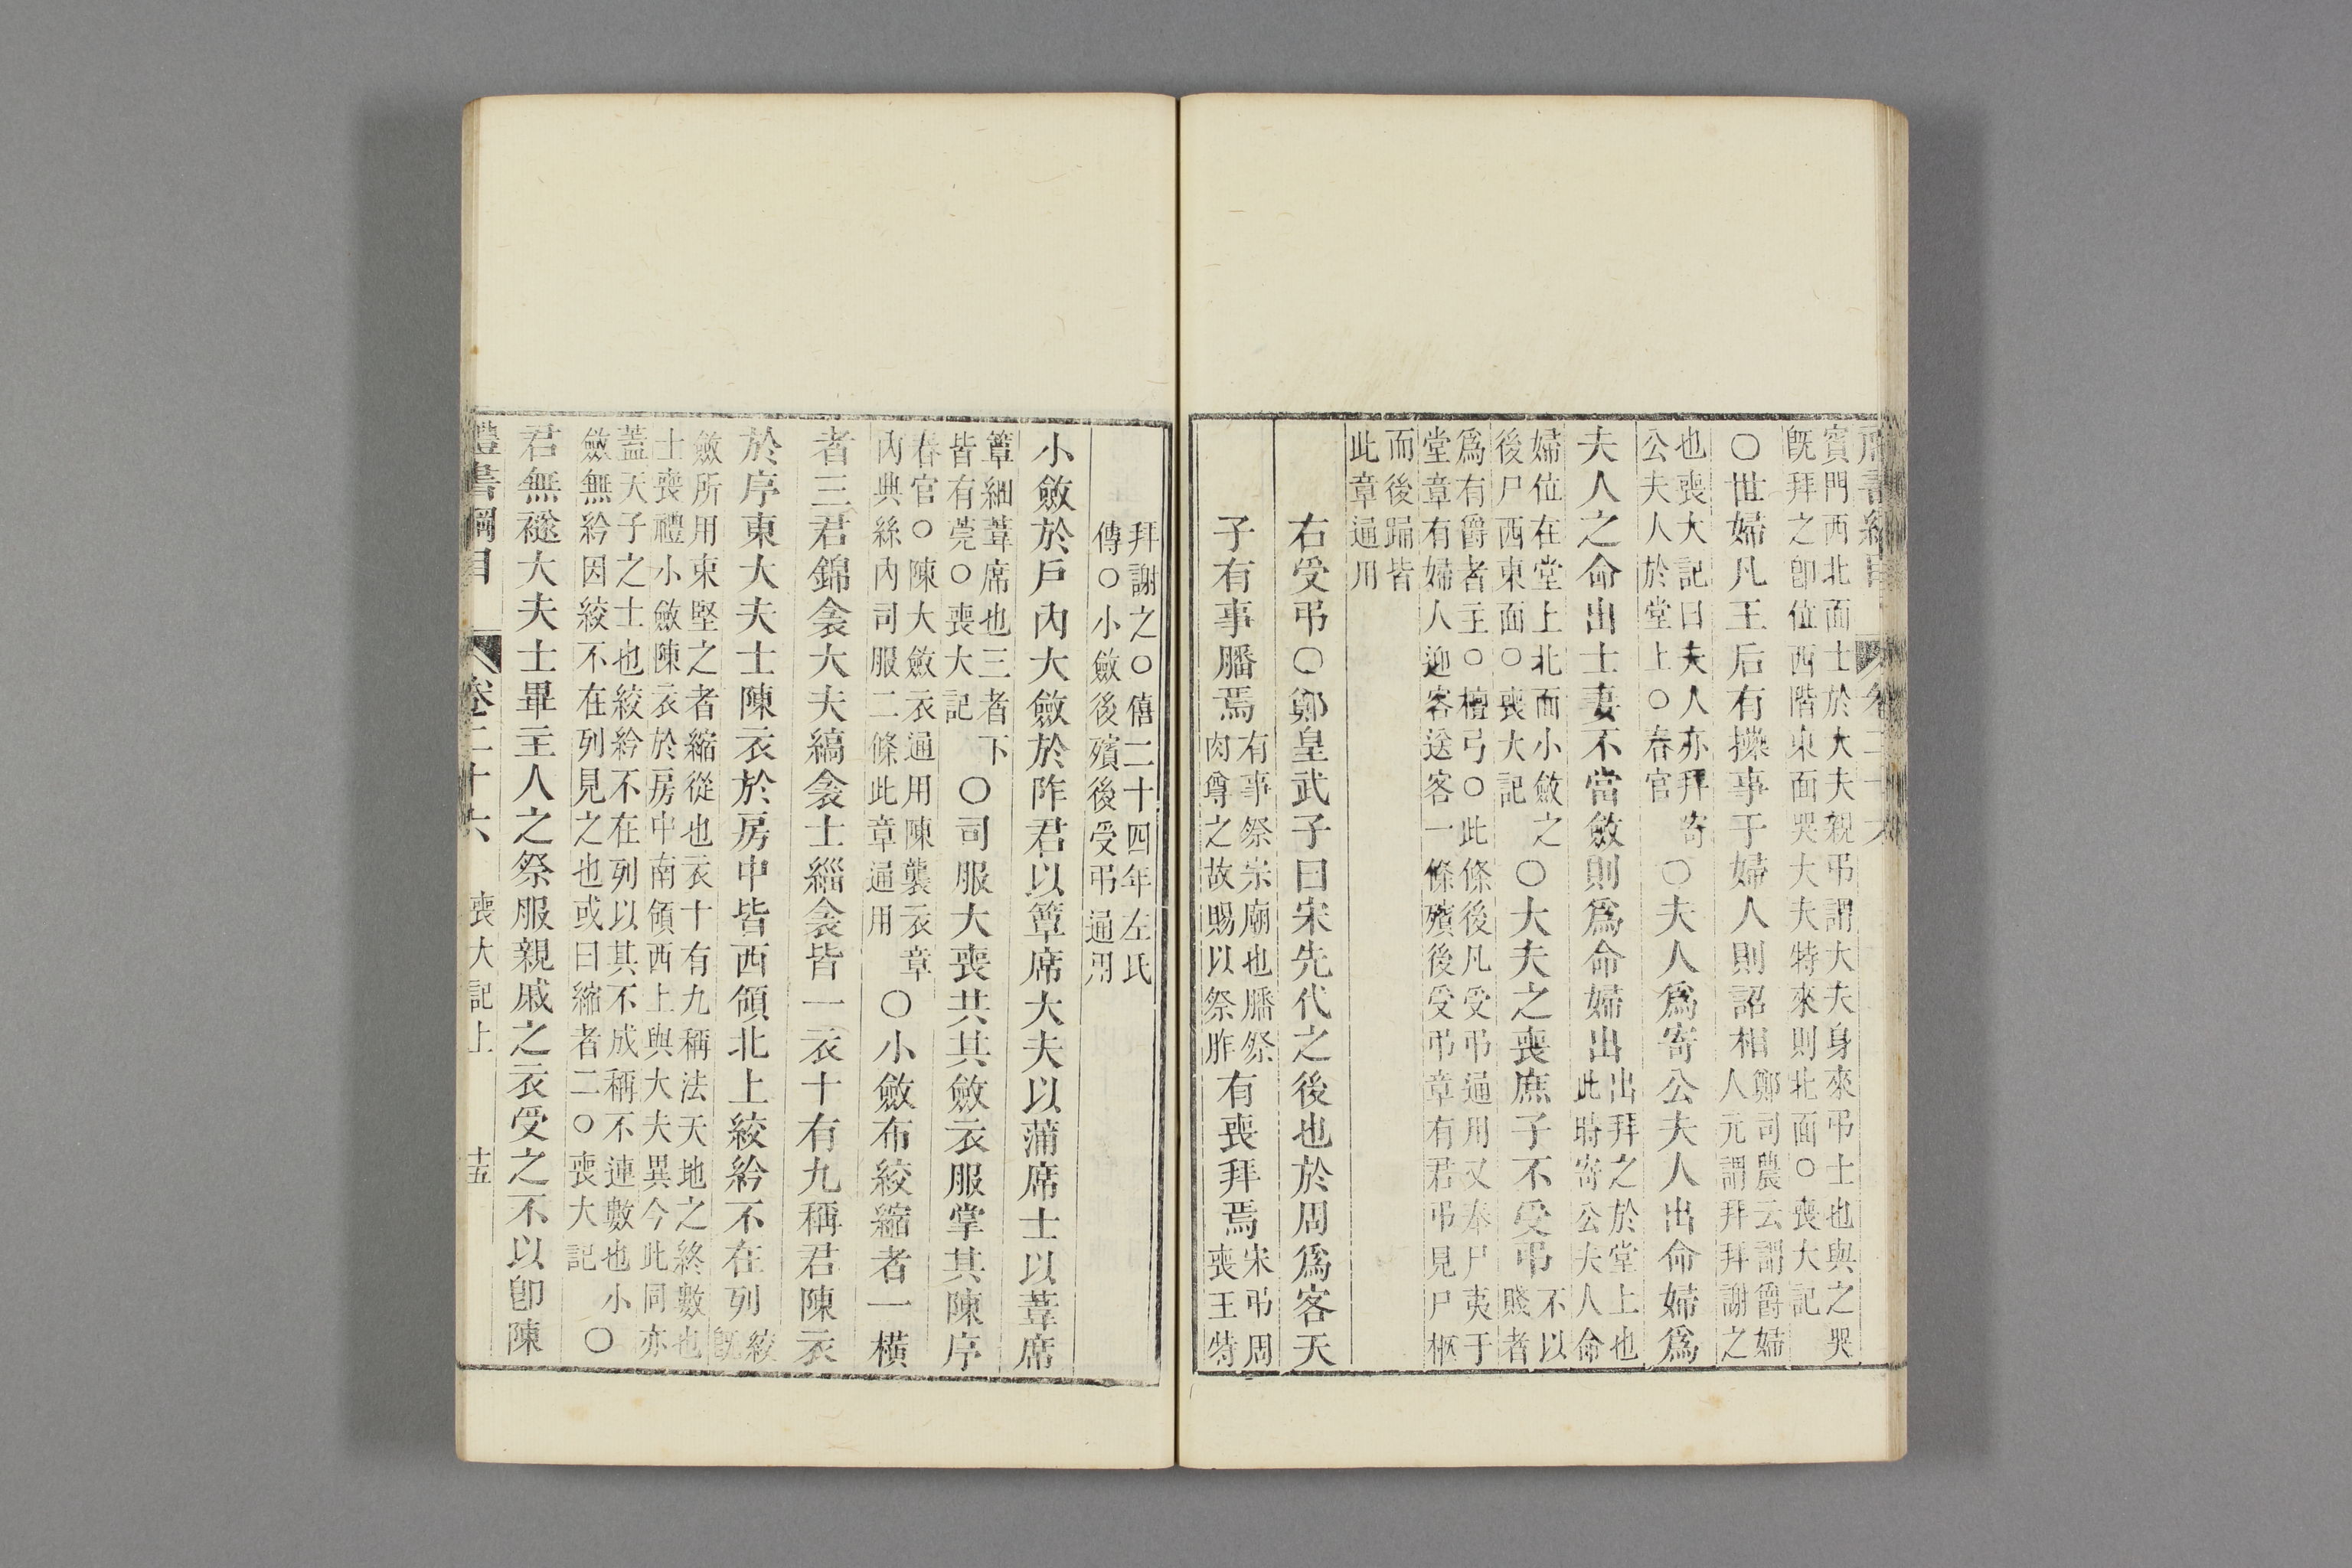 禮書綱目 卷二十六
賓門西北面士於大夫親弔謂大夫身來弔士也與之哭
旣拜之卽位西階東面哭大夫特來則北面○喪大記
○世婦凡王后有𢹎事于婦人則詔相
鄭司農云謂爵婦
人元謂拜拜謝之
也喪大記曰夫人亦拜寄
公夫人於堂上○春官
○夫人爲寄公夫人出命婦爲
夫人之命出士妻不當斂則爲命婦出
出拜之於堂上也
此時寄公夫人命
婦位在堂上北面小斂之
後尸西東面○喪大記
○大夫之喪庶子不受弔
不以
賤者
爲有爵者主○檀弓○此條後凡受弔通用又奉尸夷于
堂章有婦人迎客送客一條殯後受弔章有君弔見尸柩
而後踊皆
此章通用
右受弔○鄭皇武子曰宋先代之後也於周爲客天
子有事膰焉
有事祭宗廟也膰祭
肉尊之故賜以祭胙
有喪拜焉
宋弔周
喪王特
拜謝之○僖二十四年左氏
傳○小斂後殯後受弔通用
小斂於戶內大斂於阼君以簟席大夫以蒲席士以葦席
簟細葦席也三者下
皆有莞○喪大記
○司服大喪共其斂衣服掌其陳序
春官○陳大斂衣通用陳襲衣章
內典絲內司服二條此章通用
○小斂布絞縮者一橫
者三君錦衾大夫縞衾士緇衾皆一衣十有九稱君陳衣
於序東大夫士陳衣於房中皆西領北上絞紟不在列
絞
旣
斂所用束堅之者縮從也衣十有九稱法天地之終數也
士喪禮小斂陳衣於房中南領西上與大夫異今此同亦
蓋天子之士也絞紟不在列以其不成稱不連數也小
斂無紟因絞不在列見之也或曰縮者二○喪大記
○
君無襚大夫士畢主人之祭服親戚之衣受之不以卽陳
禮書綱目 卷二十六 喪大記上 十五